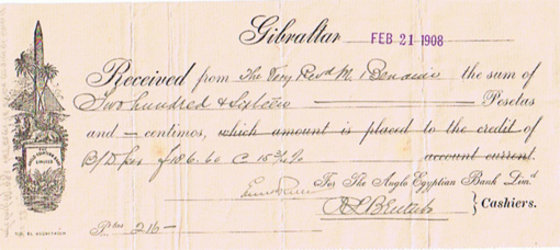 Gibraltar FEB 21 1908
Received from The Very Revd M. the sum of
Two hundred & Sixteen Pesetas
and – centimos, which amount is placed to the credit of
B/D frs 186.60 @ 15¾% account current.
For The Anglo Egyptian Bank Limd
Cashiers.
Ptas 216–